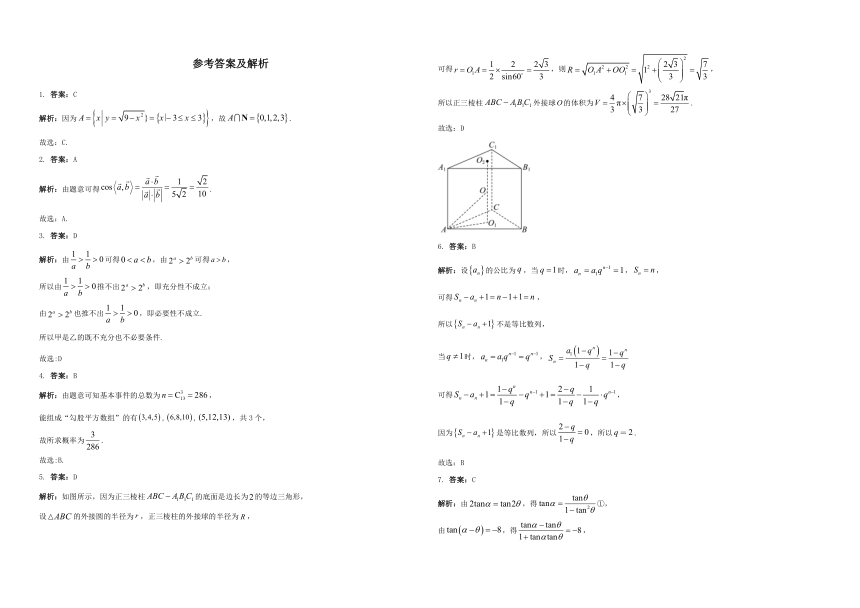 参考答案及解析
1. 答案：C
解析：因为 A={x| y=√(9-x²)}={x|-3≤x≤3}}，故 A∩N={0,1,2,3}.
故选：C.
2. 答案：A
解析：由题意可得cos⟨a,b⟩=(a·b)/(|a|·|b|)=1/(5√2)=√2/10.
故选：A.
3. 答案：D
解析：由1/a>1/b>0可得0<a<b，由2^a>2^b可得a>b，
所以由1/a>1/b>0推不出2^a>2^b，即充分性不成立；
由2^a>2^b也推不出1/a>1/b>0，即必要性不成立.
所以甲是乙的既不充分也不必要条件.
故选:D
4. 答案：B
解析：由题意可知基本事件的总数为n=C₁₃³=286，
能组成“勾股平方数组”的有(3,4,5)，(6,8,10)，(5,12,13)，共3个，
故所求概率为3/286.
故选:B.
5. 答案：D
解析：如图所示，因为正三棱柱ABC-A₁B₁C₁的底面是边长为2的等边三角形，
设△ABC的外接圆的半径为r，正三棱柱的外接球的半径为R，
可得r=O₁A=1/2×2/sin60°=2√3/3，则R=√(O₁A²+OO₁²)=√(1²+(2√3/3)²)=√(7/3)，
所以正三棱柱ABC-A₁B₁C₁外接球O的体积为V=4/3π×(√(7/3))³=28√21π/27.
故选：D
C₁
O₂
A₁
B₁
O
C
A
O₁
B
6. 答案：B
解析：设{aₙ}的公比为q，当q=1时，aₙ=a₁qⁿ⁻¹=1，Sₙ=n，
可得Sₙ-aₙ+1=n-1+1=n，
所以{Sₙ-aₙ+1}不是等比数列，
当q≠1时，aₙ=a₁qⁿ⁻¹=qⁿ⁻¹，Sₙ=a₁(1-qⁿ)/(1-q)=(1-qⁿ)/(1-q)
可得Sₙ-aₙ+1=(1-qⁿ)/(1-q)-qⁿ⁻¹+1=(2-q)/(1-q)-1/(1-q)·qⁿ⁻¹，
因为{Sₙ-aₙ+1}是等比数列，所以(2-q)/(1-q)=0，所以q=2.
故选：B
7. 答案：C
解析：由2tanα=tan2θ，得tanα=tanθ/(1-tan²θ)①，
由tan(α-θ)=-8，得(tanα-tanθ)/(1+tanαtanθ)=-8，